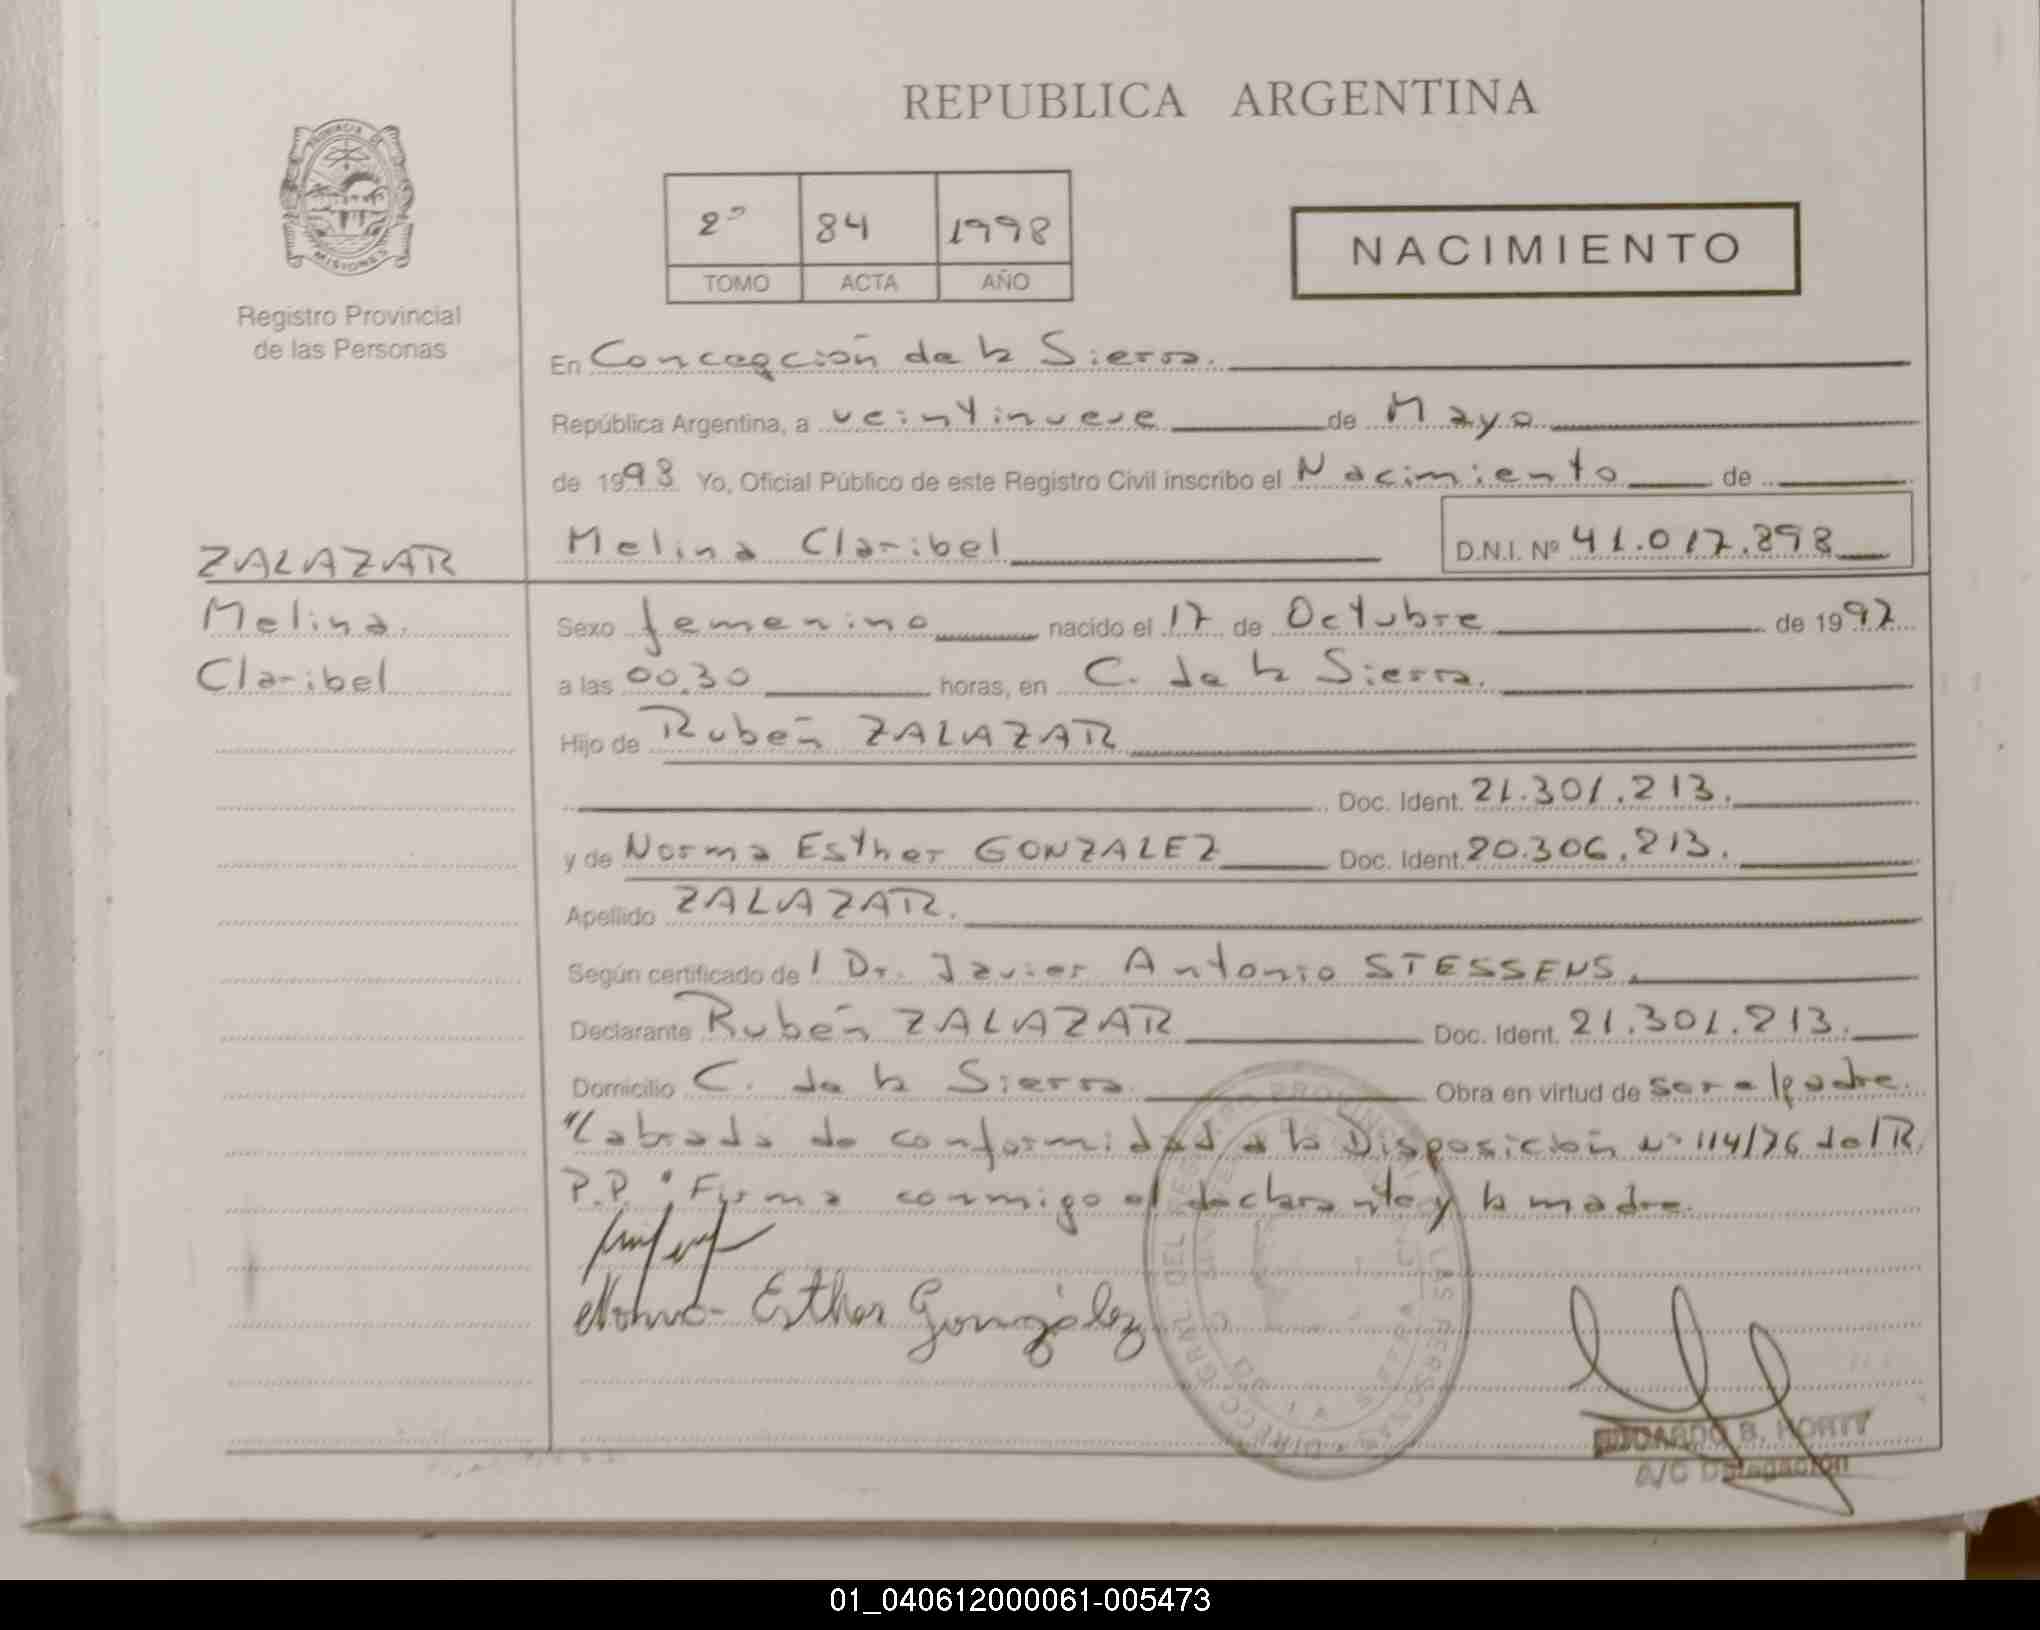 REPUBLICA ARGENTINA
PROVINCIA DE
MISIONES
Registro Provincial
de las Personas
2º 84 1998
TOMO ACTA AÑO
NACIMIENTO
En Concepción de la Sierra.
República Argentina, a veintinueve de Mayo
de 1998 Yo, Oficial Público de este Registro Civil inscribo el Nacimiento de
Melina Claribel D.N.I. Nº 41.017.898
ZALAZAR
Melina
Claribel
Sexo femenino nacido el 17 de Octubre de 1997
a las 00.30 horas, en C. de la Sierra.
Hijo de Rubén ZALAZAR
Doc. Ident. 21.301.213.
y de Norma Esther GONZALEZ Doc. Ident. 20.306.213.
Apellido ZALAZAR.
Según certificado de l Dr. Javier Antonio STESSENS.
Declarante Rubén ZALAZAR Doc. Ident. 21.301.213.
Domicilio C. de la Sierra Obra en virtud de ser el padre.
"Labrada de conformidad a la Disposición Nº 114/76 del R.
P.P." Firma conmigo el declarante y la madre.
Norma Esther González
A/C Delegación
01_040612000061-005473